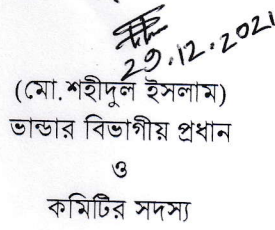 29.12.2021
(মো. শহীদুল ইসলাম)
ভান্ডার বিভাগীয় প্রধান
ও
কমিটির সদস্য